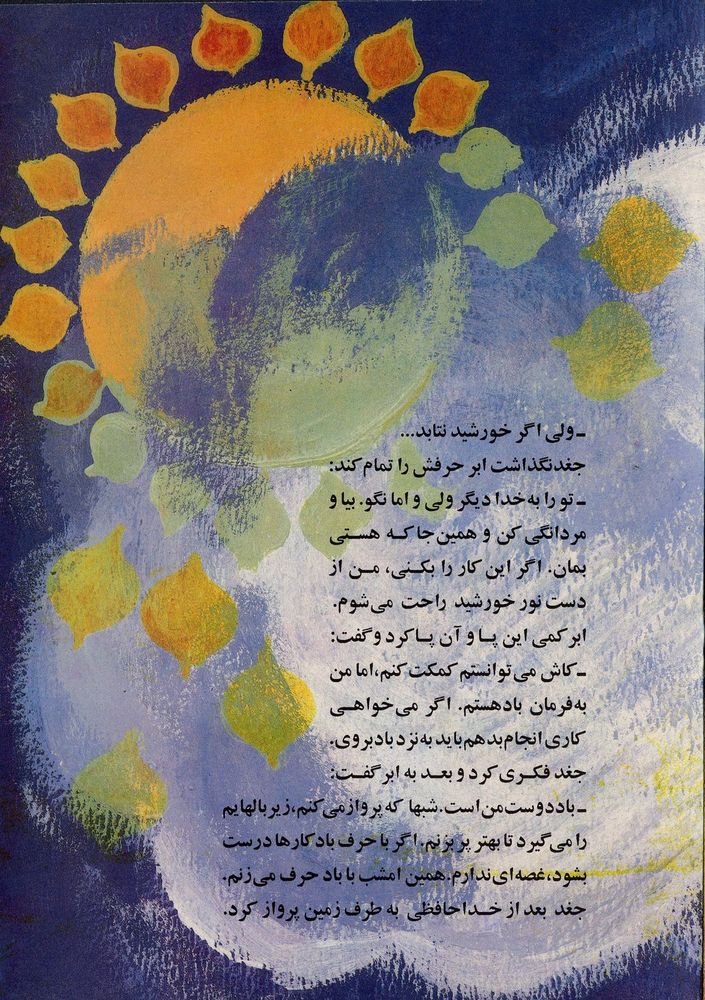 ـ ولی اگر خورشید نتابد...
جغد نگذاشت ابر حرفش را تمام کند:
ـ تو را به خدا دیگر ولی و اما نگو. بیا و
مردانگی کن و همین جا که هستی
بمان. اگر این کار را بکنی، من از
دست نور خورشید راحت می‌شوم.
ابر کمی این پا و آن پا کرد و گفت:
ـ کاش می‌توانستم کمکت کنم، اما من
به فرمان باد هستم. اگر می‌خواهی
کاری انجام بدهم باید به نزد باد بروی.
جغد فکری کرد و بعد به ابر گفت:
ـ باد دوست من است. شبها که پرواز می‌کنم، زیر بالهایم
را می‌گیرد تا بهتر پر بزنم. اگر با حرف باد کارها درست
بشود، غصه‌ای ندارم. همین امشب با باد حرف می‌زنم.
جغد بعد از خداحافظی به طرف زمین پرواز کرد.